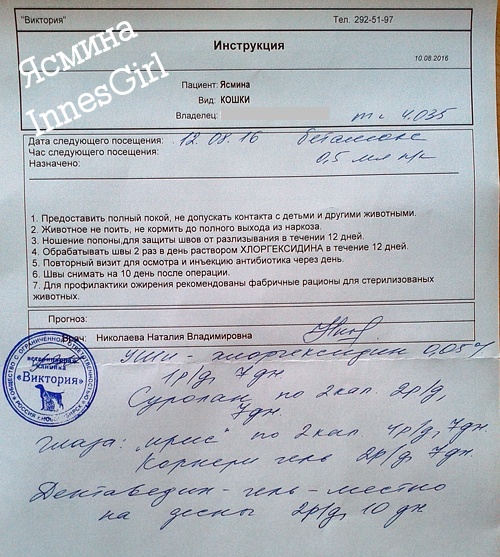 "Виктория" Тел. 292-51-97
Ясмина
InnesGirl
Инструкция
10.08.2016
Пациент: Ясмина
Вид: КОШКИ
Владелец: m. 4.035
Дата следующего посещения: 12.08.16 бетамокс
Час следующего посещения: 0,5 мл п/к
Назначено:
1. Предоставить полный покой, не допускать контакта с детьми и другими животными.
2. Животное не поить, не кормить до полного выхода из наркоза.
3. Ношение попоны,для защиты швов от разлизывания в течении 12 дней.
4. Обрабатывать швы 2 раз в день раствором ХЛОРГЕКСИДИНА в течение 12 дней.
5. Повторный визит для осмотра и инъекцию антибиотика через день.
6. Швы снимать на 10 день после операции.
7. Для профилактики ожирения рекомендованы фабричные рационы для стерилизованых
животных.
Прогноз:
Врач: Николаева Наталия Владимировна
Уши - хлоргексидин 0,05%
1р/д, 7 дн
Суролан по 2 кап. 2р/д,
7дн.
глаза: "ирис" по 2 кап. 4р/д, 7дн
Корнери гель 2р/д, 7дн.
Дентаведин - гель - местно
на десны 2р/д, 10 дн
ветеринарная
клиника
«Виктория»